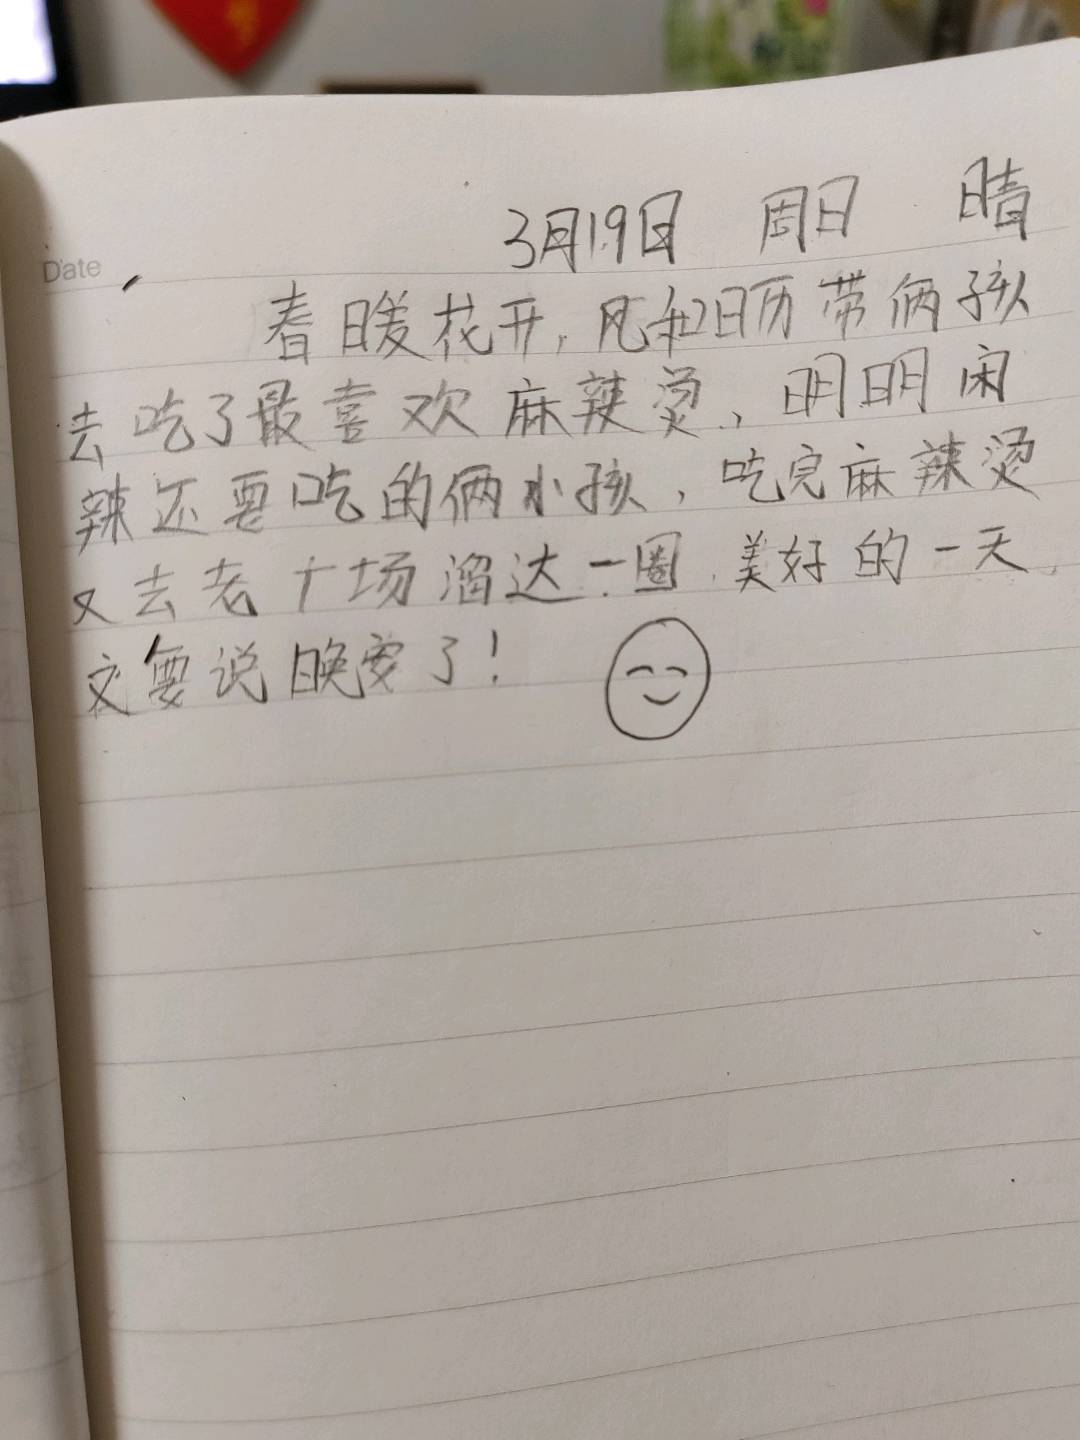 3月19日 周日 晴
Date
春暖花开,风和日历带俩孩
去吃了最喜欢麻辣烫、明明闲
辣还要吃的俩小孩,吃完麻辣烫
又去老广场溜达一圈.美好的一天.
又要说晚安了!